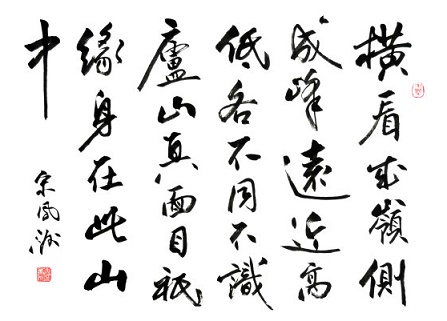 橫看成嶺側
成峰遠近高
低各不同不識
廬山真面目祗
緣身在此山
中
宋